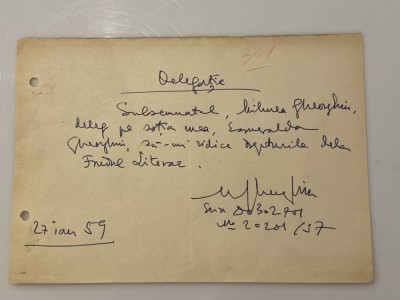 301
Delegație
Subsemnatul, Mihnea Gheorghiu,
deleg pe soția mea, Esmeralda
Gheorghiu, să-mi ridice drepturile dela
Fondul Literar.
27 ian 59
Seria
No 20201 /57